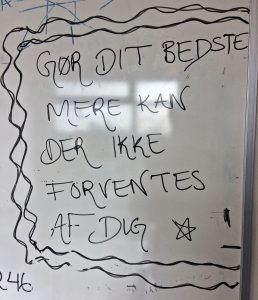 GØR DIT BEDSTE
MERE KAN
DER IKKE
FORVENTES
AF DIG